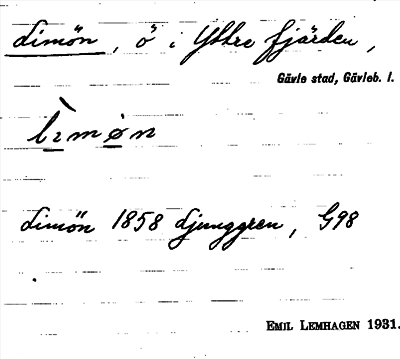 Limön, ö i Yttre fjärden,
Gävle stad, Gävleb. l.
lìmøn
Limön 1858 Ljunggren, G98
EMIL LEMHAGEN 1931.